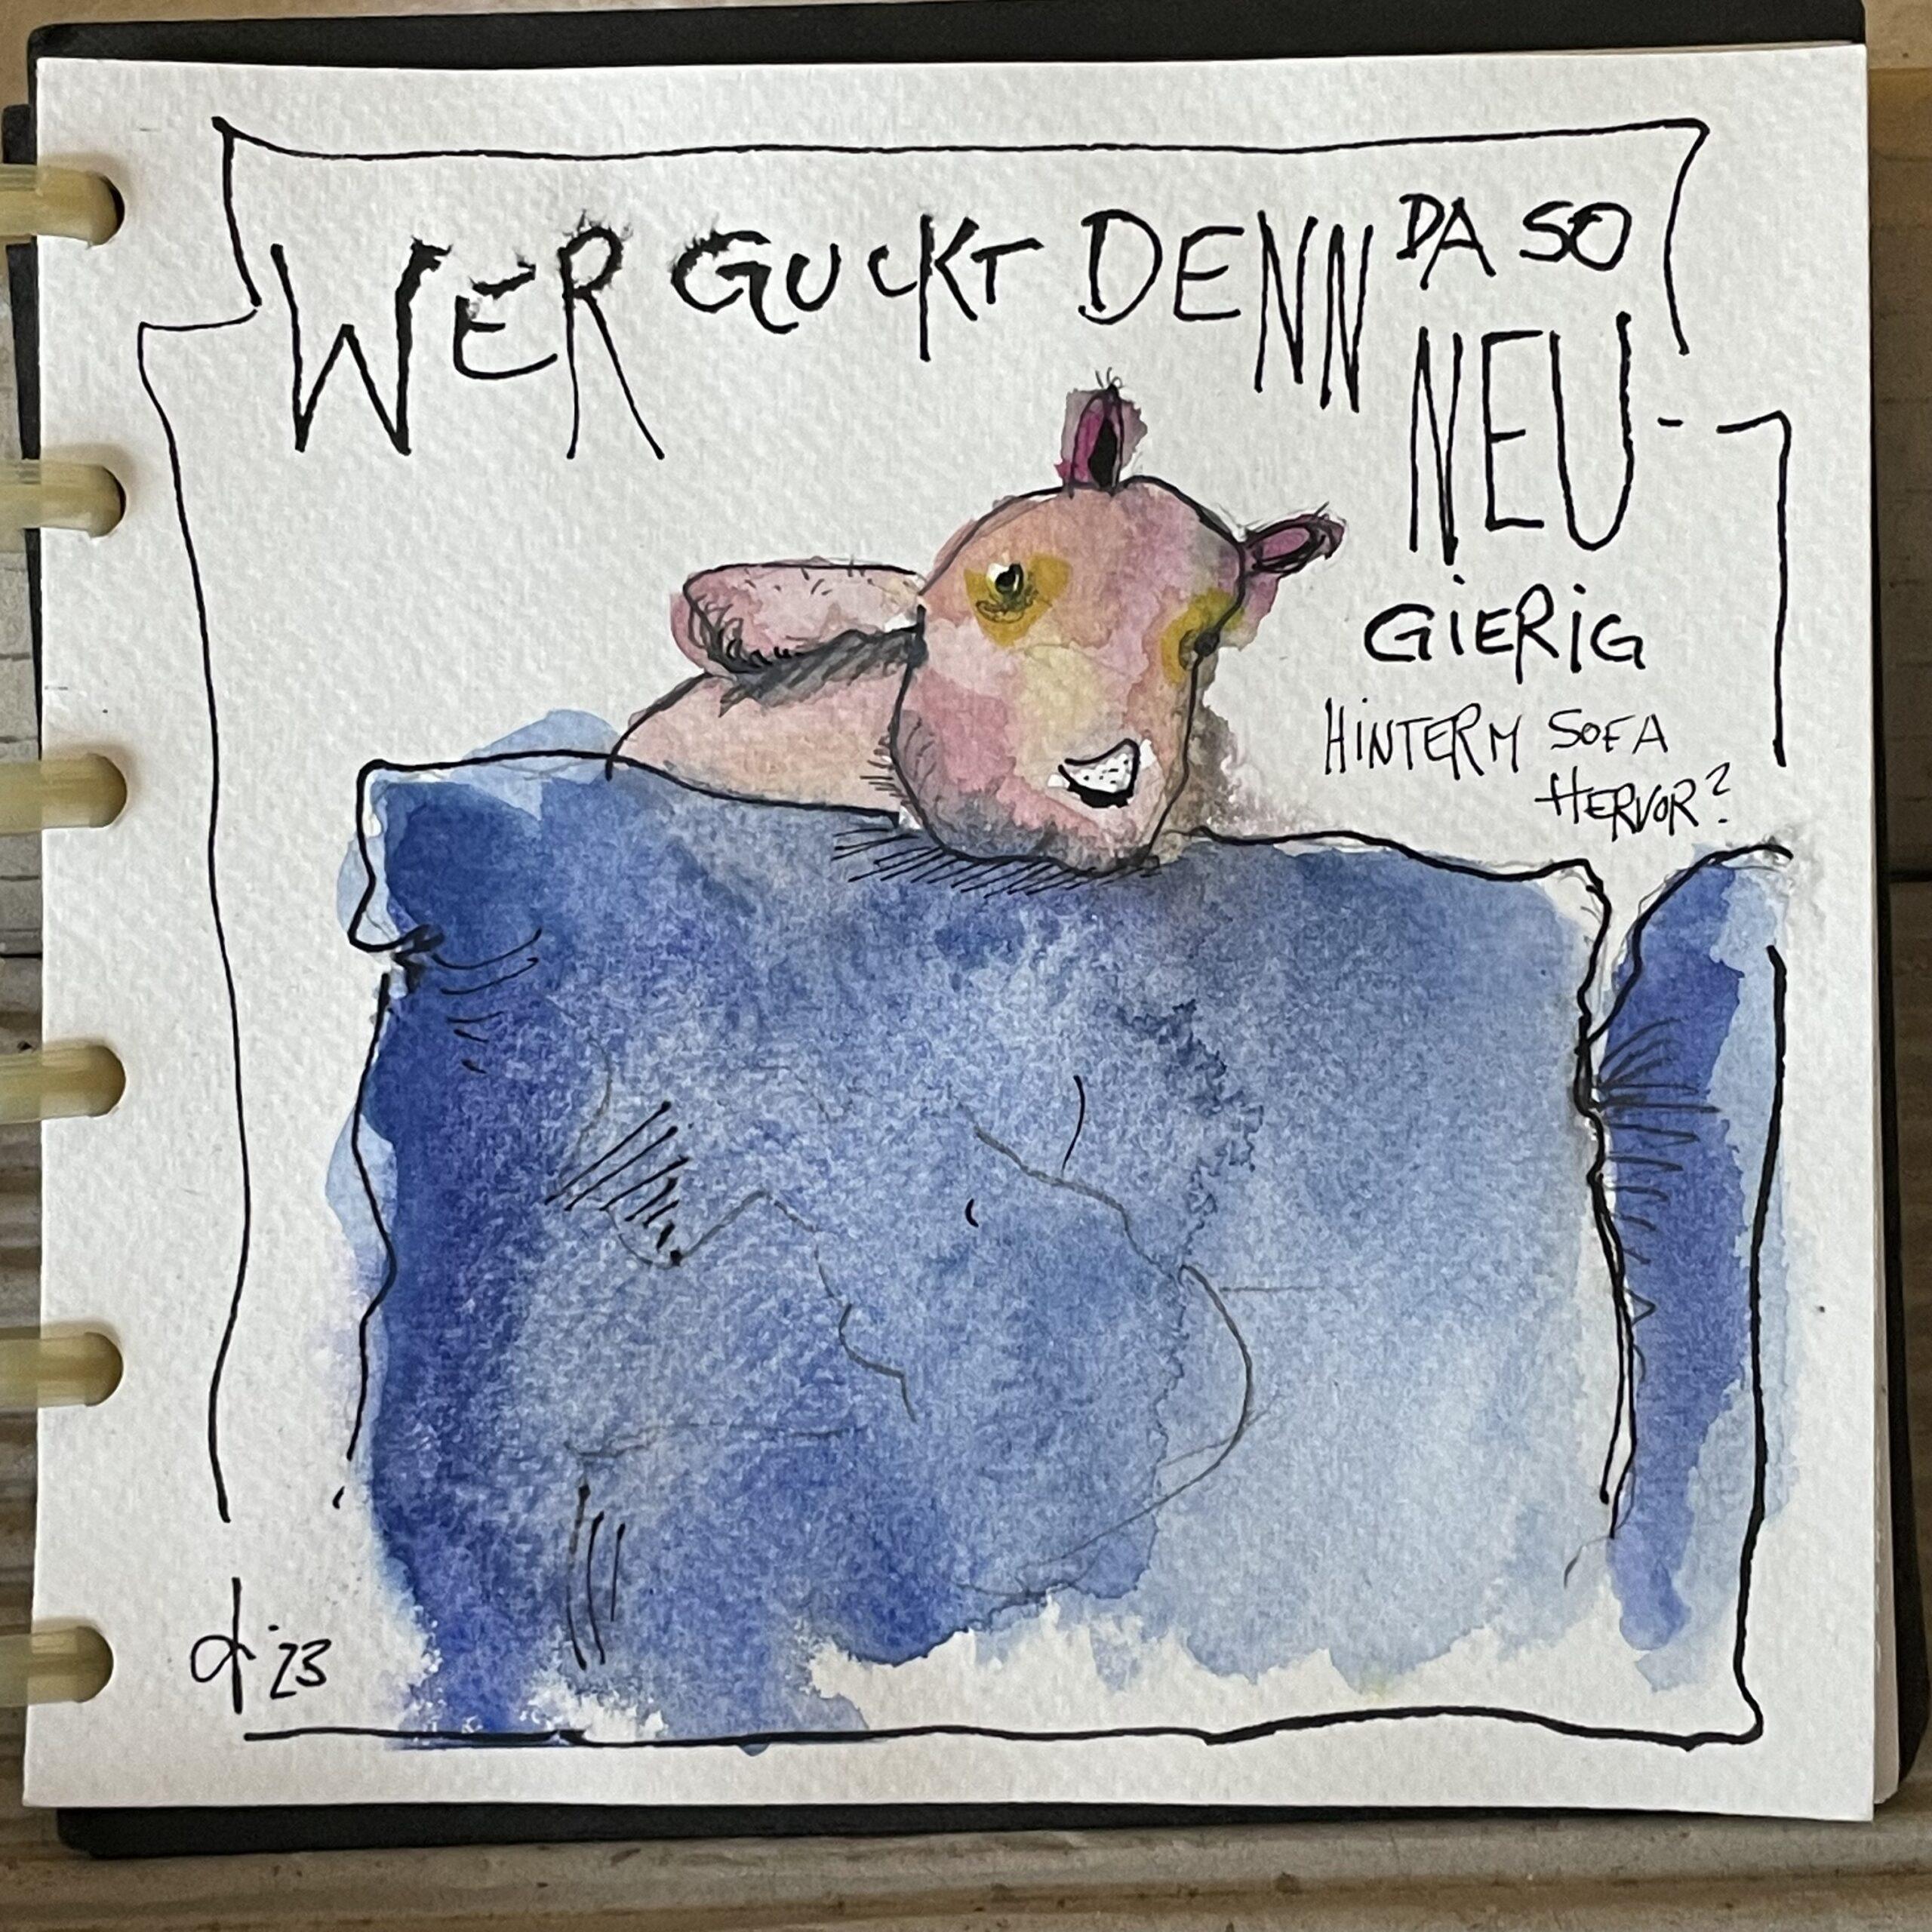 WER GUCKT DENN DA SO
NEU-
GiERiG
HiNTERM SOFA
HERVOR?
'23